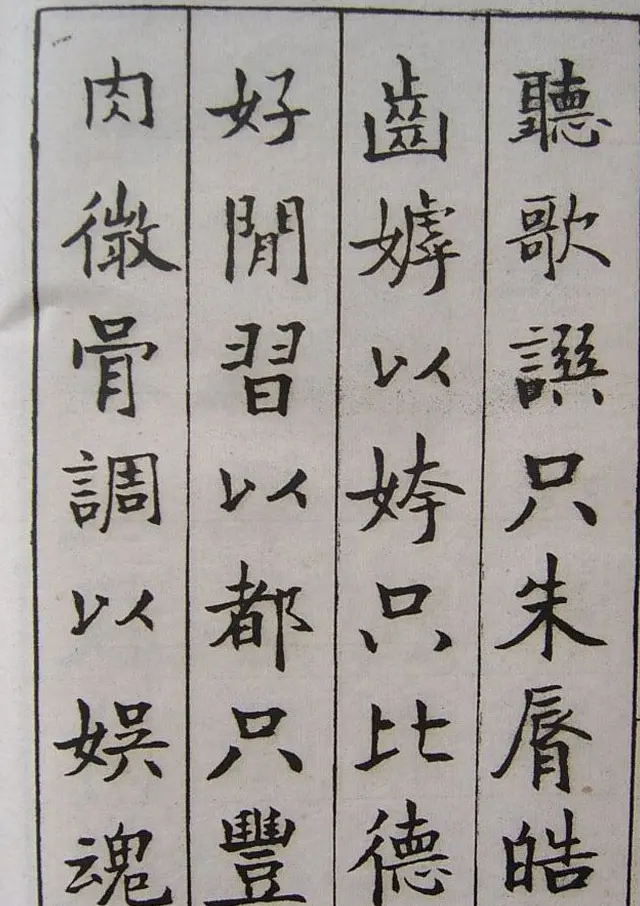 聽歌譔只朱脣皓
齒嫭以姱只比德
好閒習以都只豐
肉微骨調以娛魂